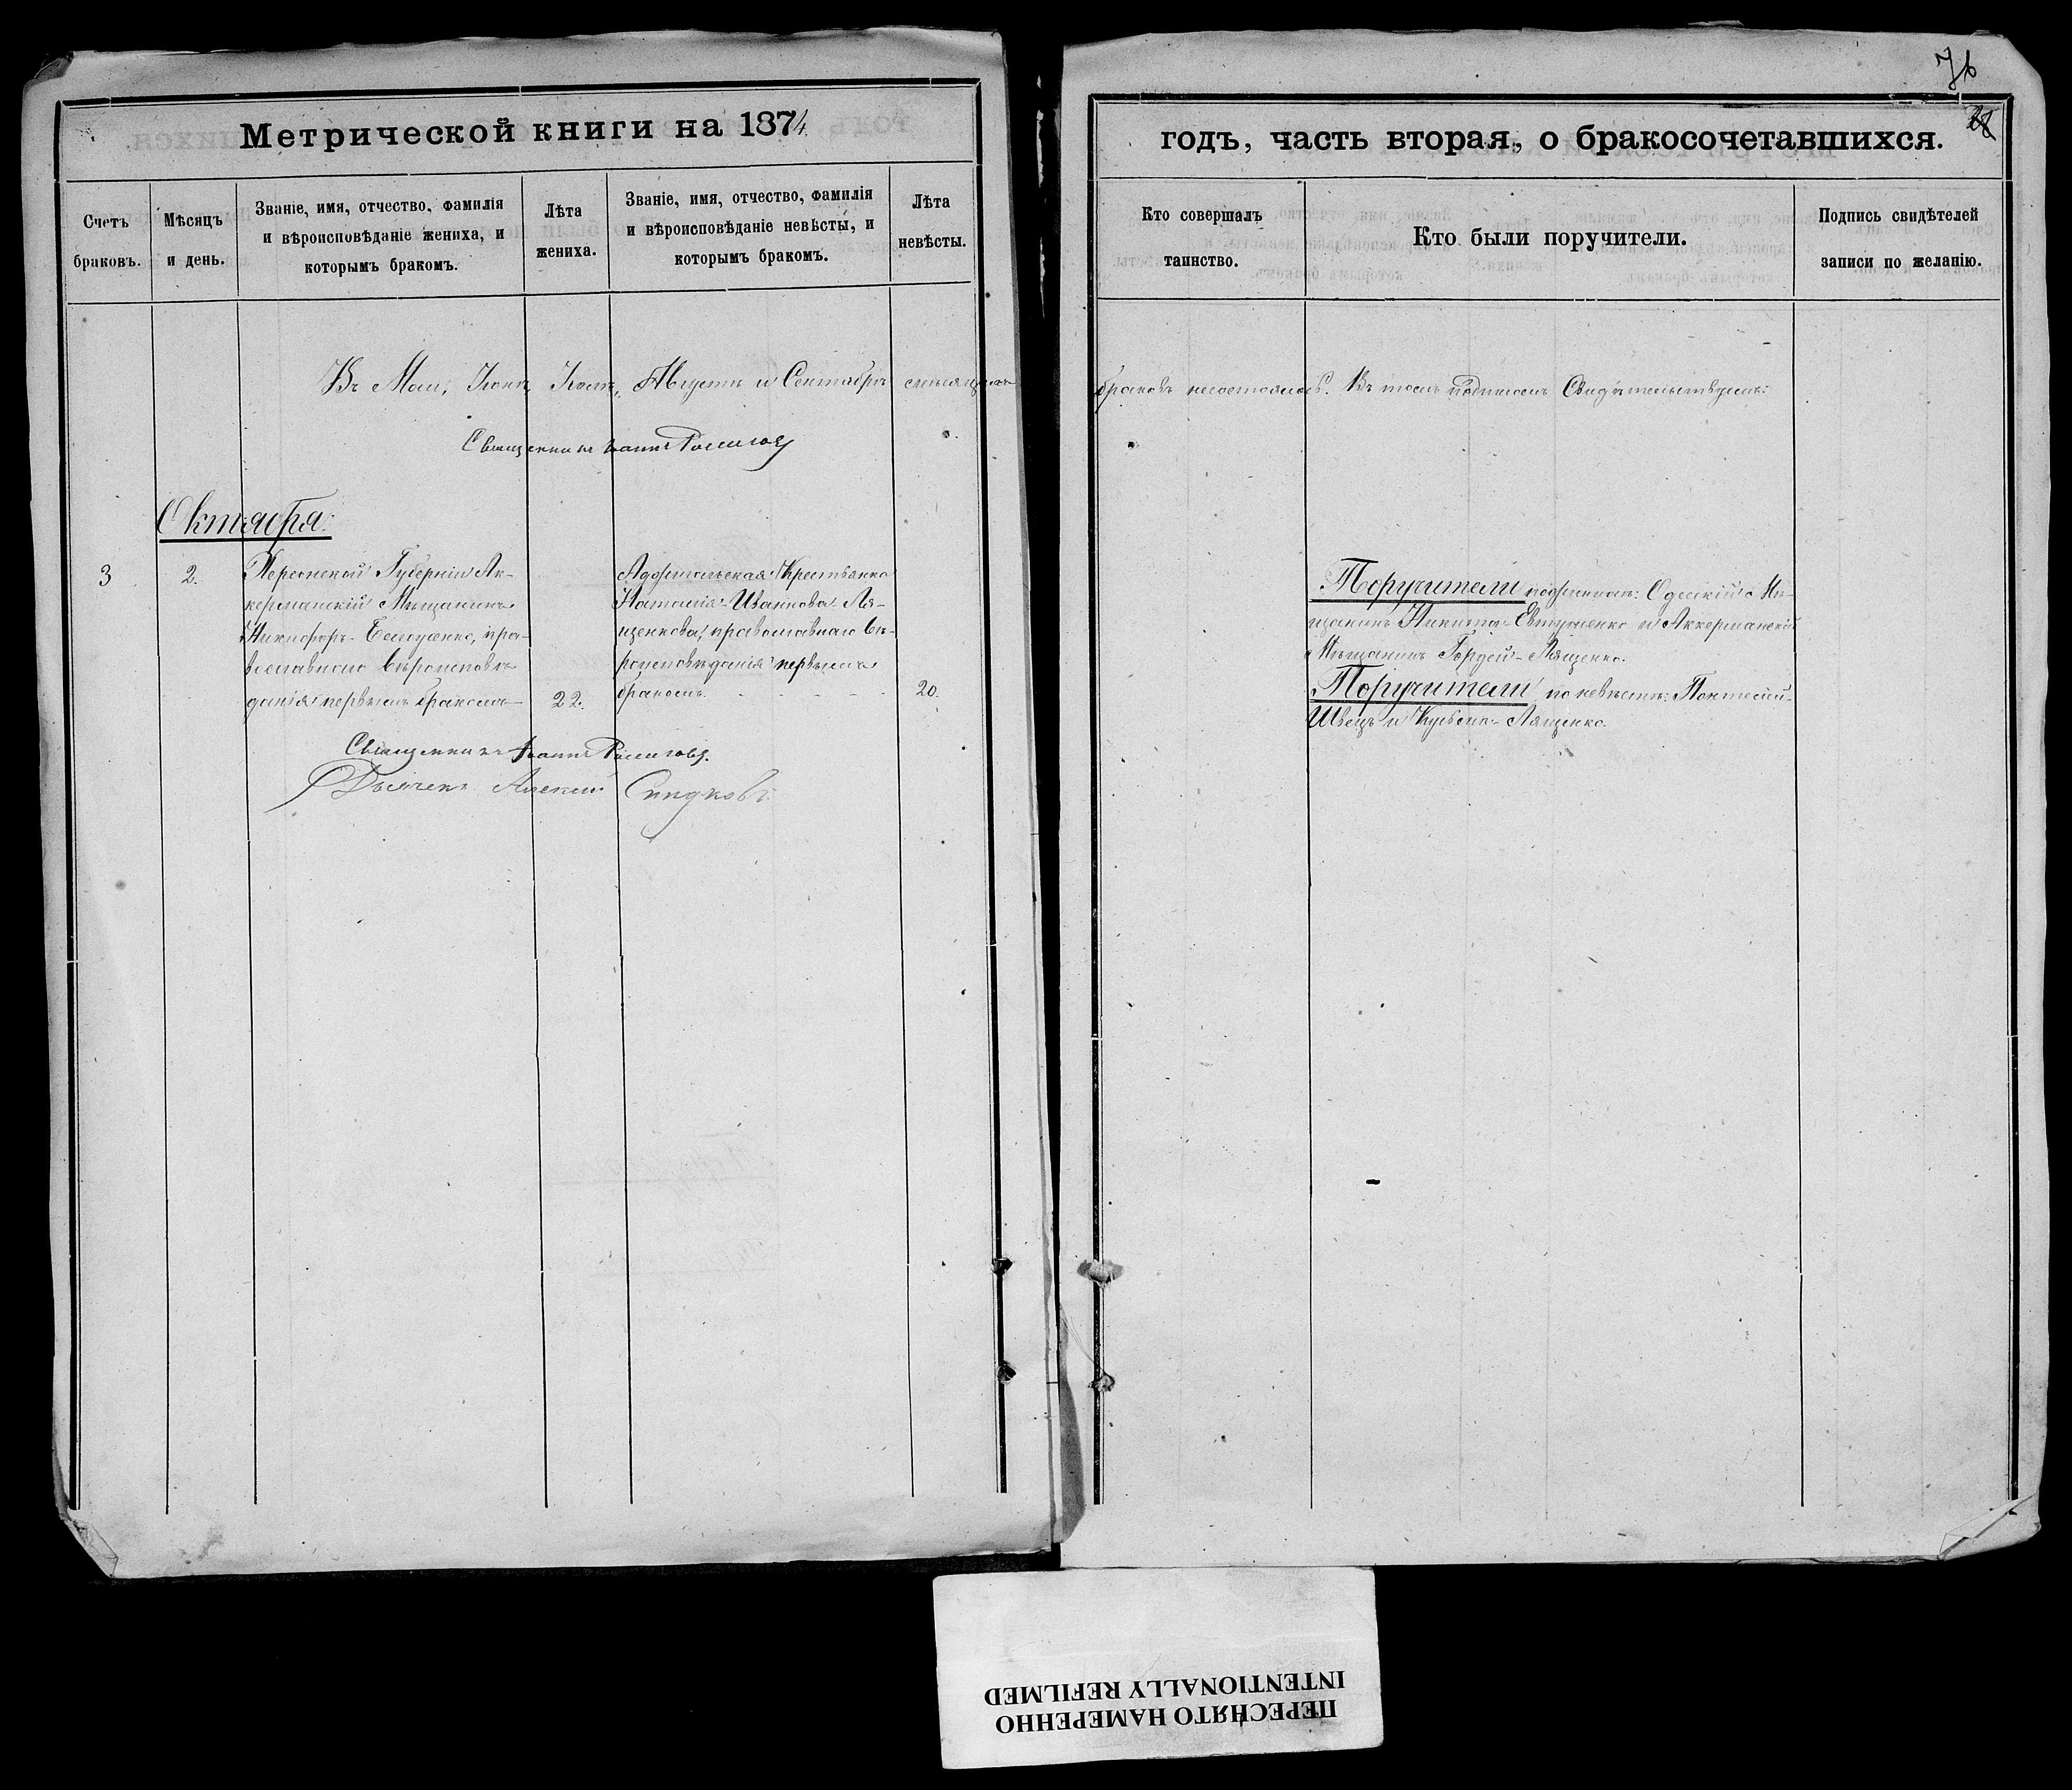 76
28
Метрической книги на 1874
годъ, часть вторая, о бракосочетавшихся.
Счетъ браковъ.
Мѣсяцъ и день.
Званіе, имя, отчество, фамилія
и вѣроисповѣданіе жениха, и
которымъ бракомъ.
Лѣта жениха.
Званіе, имя, отчество, фамилія
и вѣроисповѣданіе невѣсты, и
которымъ бракомъ.
Лѣта невѣсты.
Кто совершалъ таинство.
Кто были поручители.
Подпись свидѣтелей
записи по желанію.
Въ Маи, Іюнѣ, Іюлѣ, Августѣ и Сентябрѣ мѣсяцахъ браковъ несостоялось. Въ томъ подписомъ Свидѣтельствуемъ:
Священникъ Іоаннъ
Октября
3
2.
Херсонской Губерніи Ак-
керманскій Мѣщанинъ
Никифоръ, пра-
вославнаго вѣроисповѣ-
данія первымъ бракомъ
22.
Крестьянка
Наталія Иванова Ля-
щенкова, православнаго вѣ-
роисповѣданія первымъ
бракомъ.
20.
Поручители по женихѣ: Одесскій Мѣ-
щанинъ Никита Евтушенко и Аккерманскій
Мѣщанинъ Гордей Лященко.
Поручители по невѣстѣ:
Швецъ и Кузьма Лященко.
Священникъ Іоаннъ
Дьячекъ Алексѣй
ПЕРЕСНЯТО НАМЕРЕННО
INTENTIONALLY REFILMED